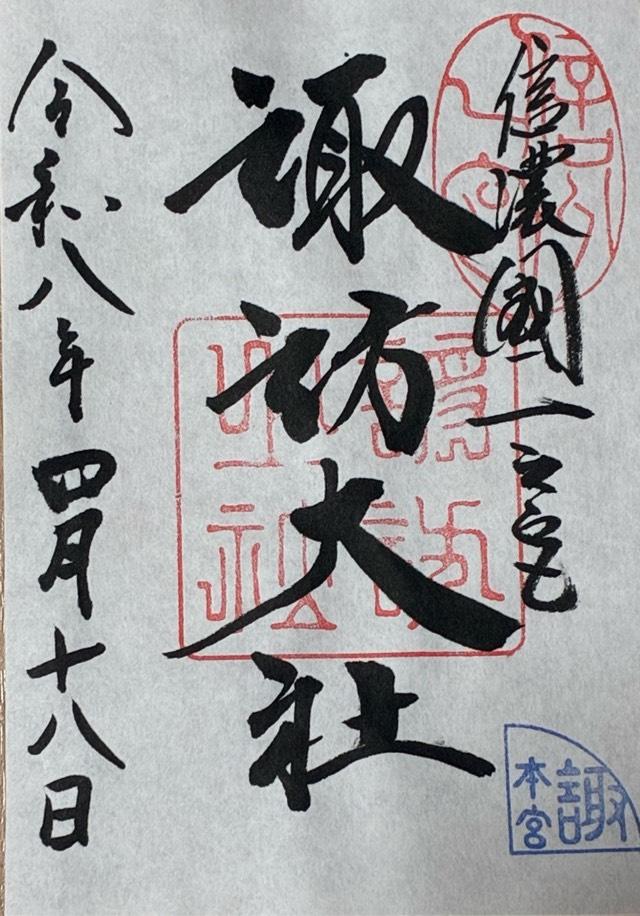 信濃國一之宮
諏訪大社
令和八年四月十八日
諏
本宮